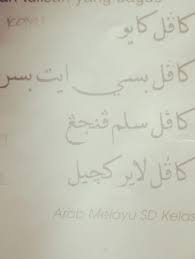 tulisan yang bagus
كاڤل كايو
كاڤل بسي ايت بسر
كاڤل سلم ڤنجڠ
كاڤل لاير كچيل
Arab Melayu SD Kelas